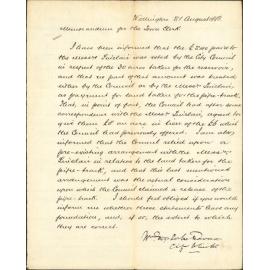 Wellington 21 August
Memorandum for the Town Clerk
I have been informed that the £ 200 paid to
the Messrs Sinclair was voted by the City Council
in respect of the 30 acres taken for the reservoir,
and that no part of that amount was treated
either by the Council or by the Messrs Sinclair
as payment for land taken for the pipe-track.
That, in point of fact, the Council had after some
correspondence with the Messrs Sinclair, agreed to
give them £ an acre in lieu of the £ which
the Council had previously offered. I am also
informed that the Council relied upon a
pre-existing arrangement with the Messrs
Sinclair in relation to the land taken for the
pipe-track, and that this last mentioned
arrangement was the actual consideration
upon which the Council claimed a release of the
pipe-track. I should feel obliged if you would
inform me whether these statements have any
foundation, and, if so, the extent to which
they are correct.
City Solicitor